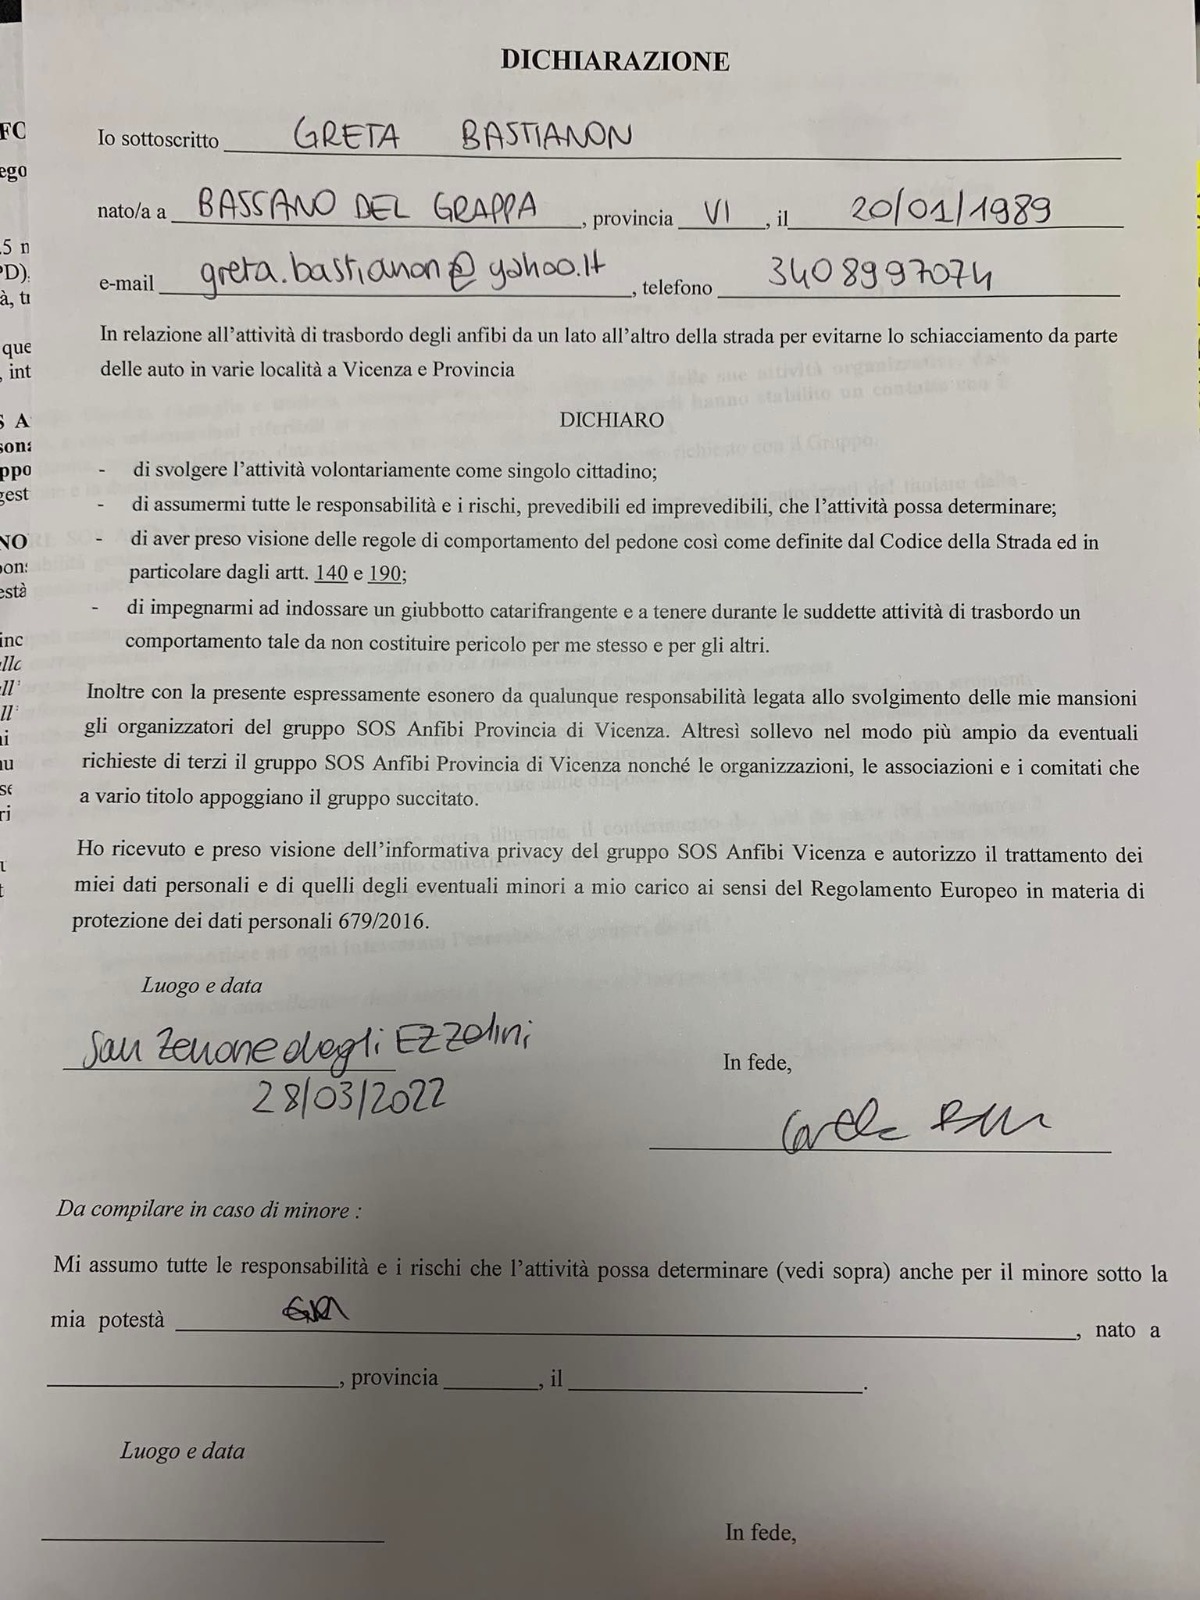 DICHIARAZIONE
Io sottoscritto GRETA BASTIANON
nato/a a BASSANO DEL GRAPPA, provincia VI, il 20/01/1989
e-mail greta.bastianon@yahoo.it, telefono 3408997074
In relazione all'attività di trasbordo degli anfibi da un lato all'altro della strada per evitarne lo schiacciamento da parte
delle auto in varie località a Vicenza e Provincia
DICHIARO
- di svolgere l'attività volontariamente come singolo cittadino;
- di assumermi tutte le responsabilità e i rischi, prevedibili ed imprevedibili, che l'attività possa determinare;
- di aver preso visione delle regole di comportamento del pedone così come definite dal Codice della Strada ed in
particolare dagli artt. 140 e 190;
- di impegnarmi ad indossare un giubbotto catarifrangente e a tenere durante le suddette attività di trasbordo un
comportamento tale da non costituire pericolo per me stesso e per gli altri.
Inoltre con la presente espressamente esonero da qualunque responsabilità legata allo svolgimento delle mie mansioni
gli organizzatori del gruppo SOS Anfibi Provincia di Vicenza. Altresì sollevo nel modo più ampio da eventuali
richieste di terzi il gruppo SOS Anfibi Provincia di Vicenza nonché le organizzazioni, le associazioni e i comitati che
a vario titolo appoggiano il gruppo succitato.
Ho ricevuto e preso visione dell'informativa privacy del gruppo SOS Anfibi Vicenza e autorizzo il trattamento dei
miei dati personali e di quelli degli eventuali minori a mio carico ai sensi del Regolamento Europeo in materia di
protezione dei dati personali 679/2016.
Luogo e data
San Zenone degli Ezzelini
28/03/2022
In fede,
Da compilare in caso di minore :
Mi assumo tutte le responsabilità e i rischi che l'attività possa determinare (vedi sopra) anche per il minore sotto la
mia potestà , nato a
, provincia , il .
Luogo e data
In fede,